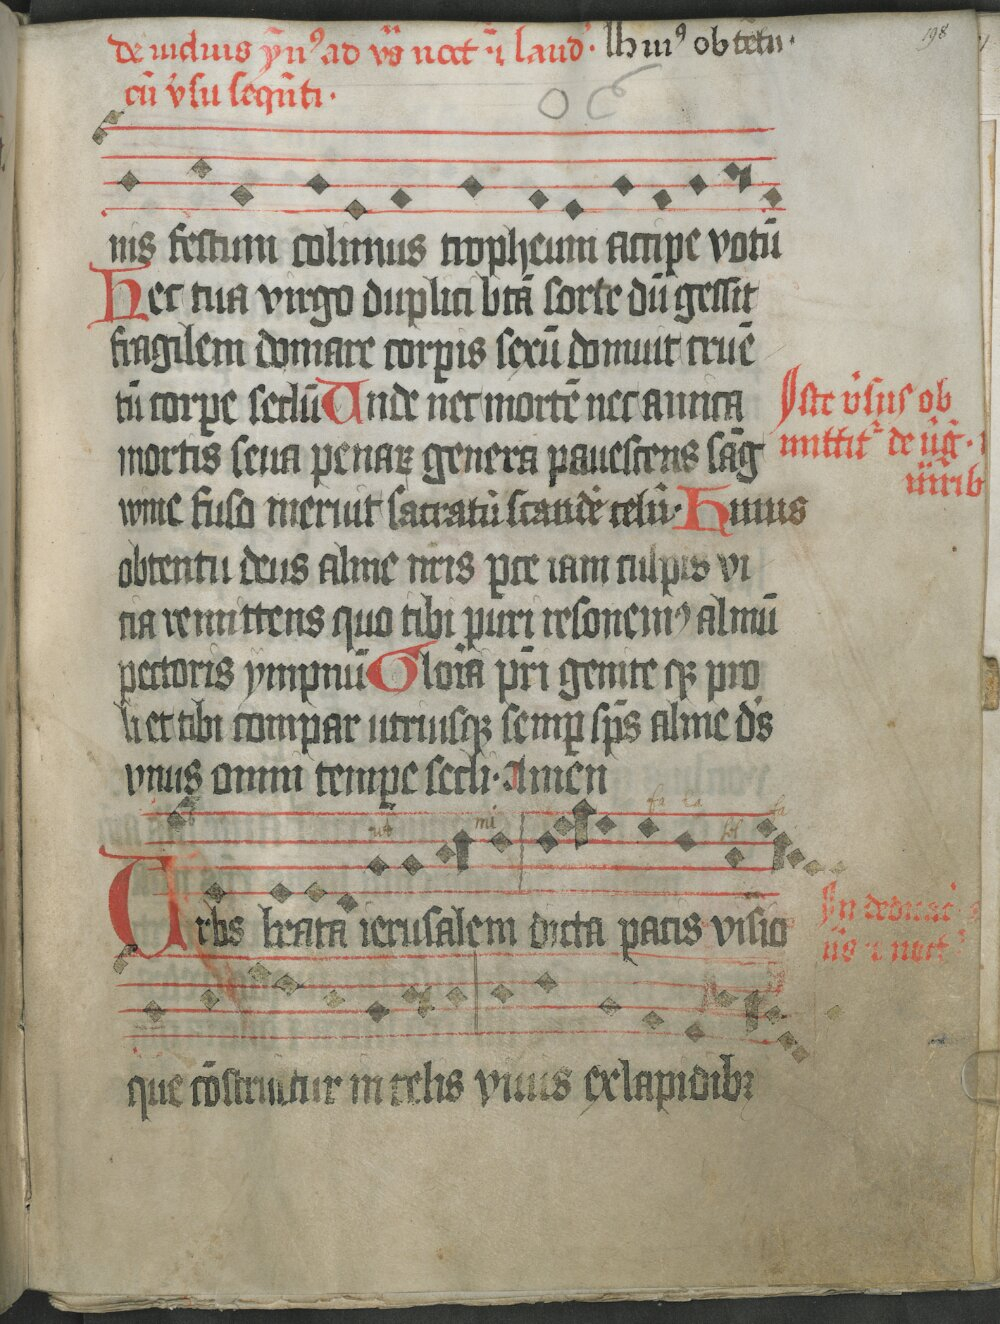 de viduis ẏn⁹ ad vꝰ noct̄ ⁊ ī laud᷎. Huiꝰ obtētu.
cū v̉su seqūti.
198
nis festum colimus tropheum accipe votū
Hec tua virgo duplici btā sorte dū gessit
fragilem domare corpis sexū domuit cruē
tū corpe seclū Unde nec mortē nec amica
mortis seua penaꝝ genera pauescens sāg
wine fuso meruit sacratū scandē celū. Huius
Iste v̉sus ob
mittit᷑ de v̉ḡ.
obtentu deus alme nr̄is pce iam culpis vi
cia remittens quo tibi puri resonemꝰ almū
pectoris ympnū Gloīa pr̄i genite qꝫ pro
li et tibi compar utriusqꝫ semꝑ sp̄s alme d̓s
vnus omni tempe secli. Amen
ut mi fa la sol fa
Urbs beata ierusalem dicta pacis visio
In dedicac̄
que cōstruitur in celis viuis ex lapidibꝫ